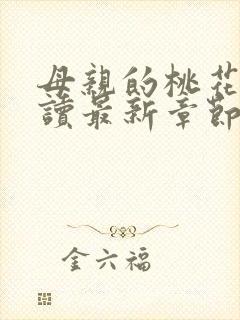 母親的桃花
讀最新章節
金六福